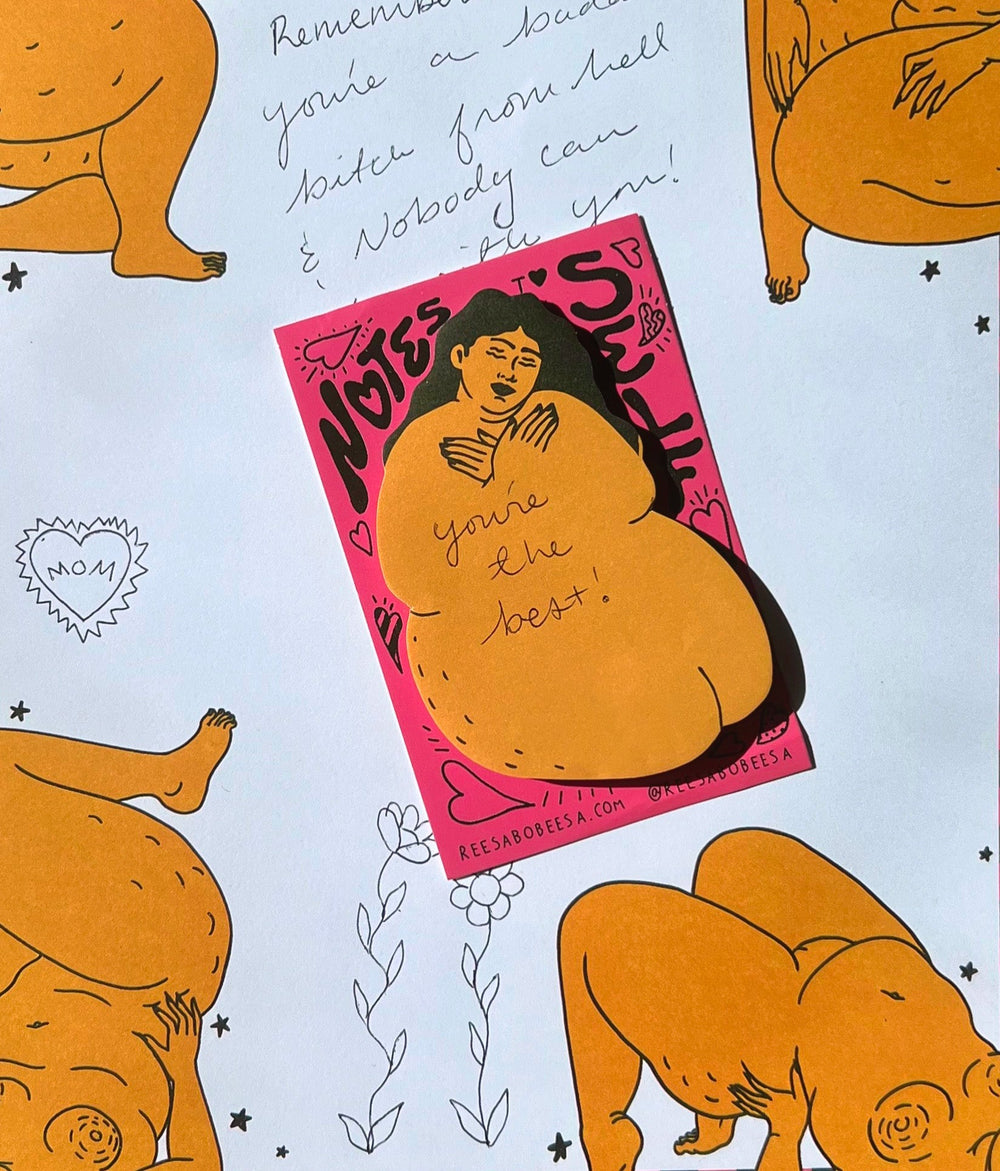 Remember
you're a badd
bitch from hell
& Nobody can
with you!
NOTES TO SELF
you're
the
best!
MOM
REESABOBEESA.COM @REESABOBEESA